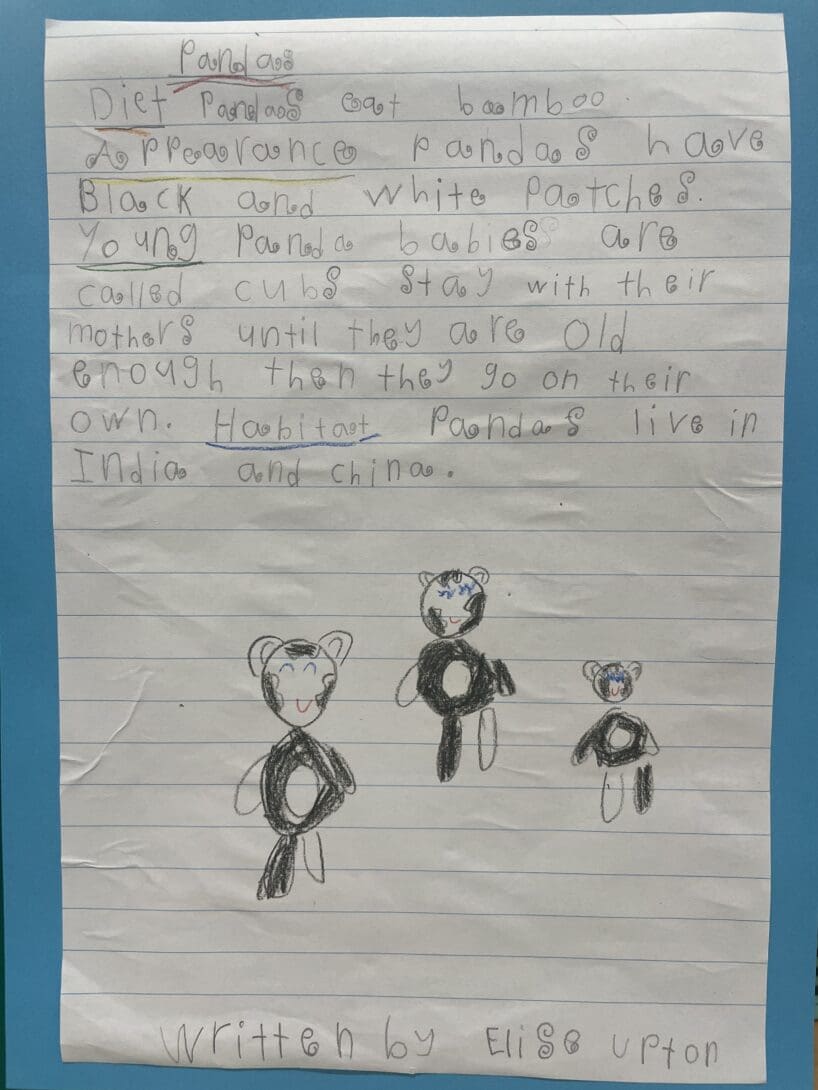 Pandas
Diet Pandas eat bamboo.
Appearance pandas have
Black and white patches.
Young Panda babies are
called cubs stay with their
mothers until they are old
enough then they go on their
own. Habitat Pandas live in
India and china.
written by Elise upton